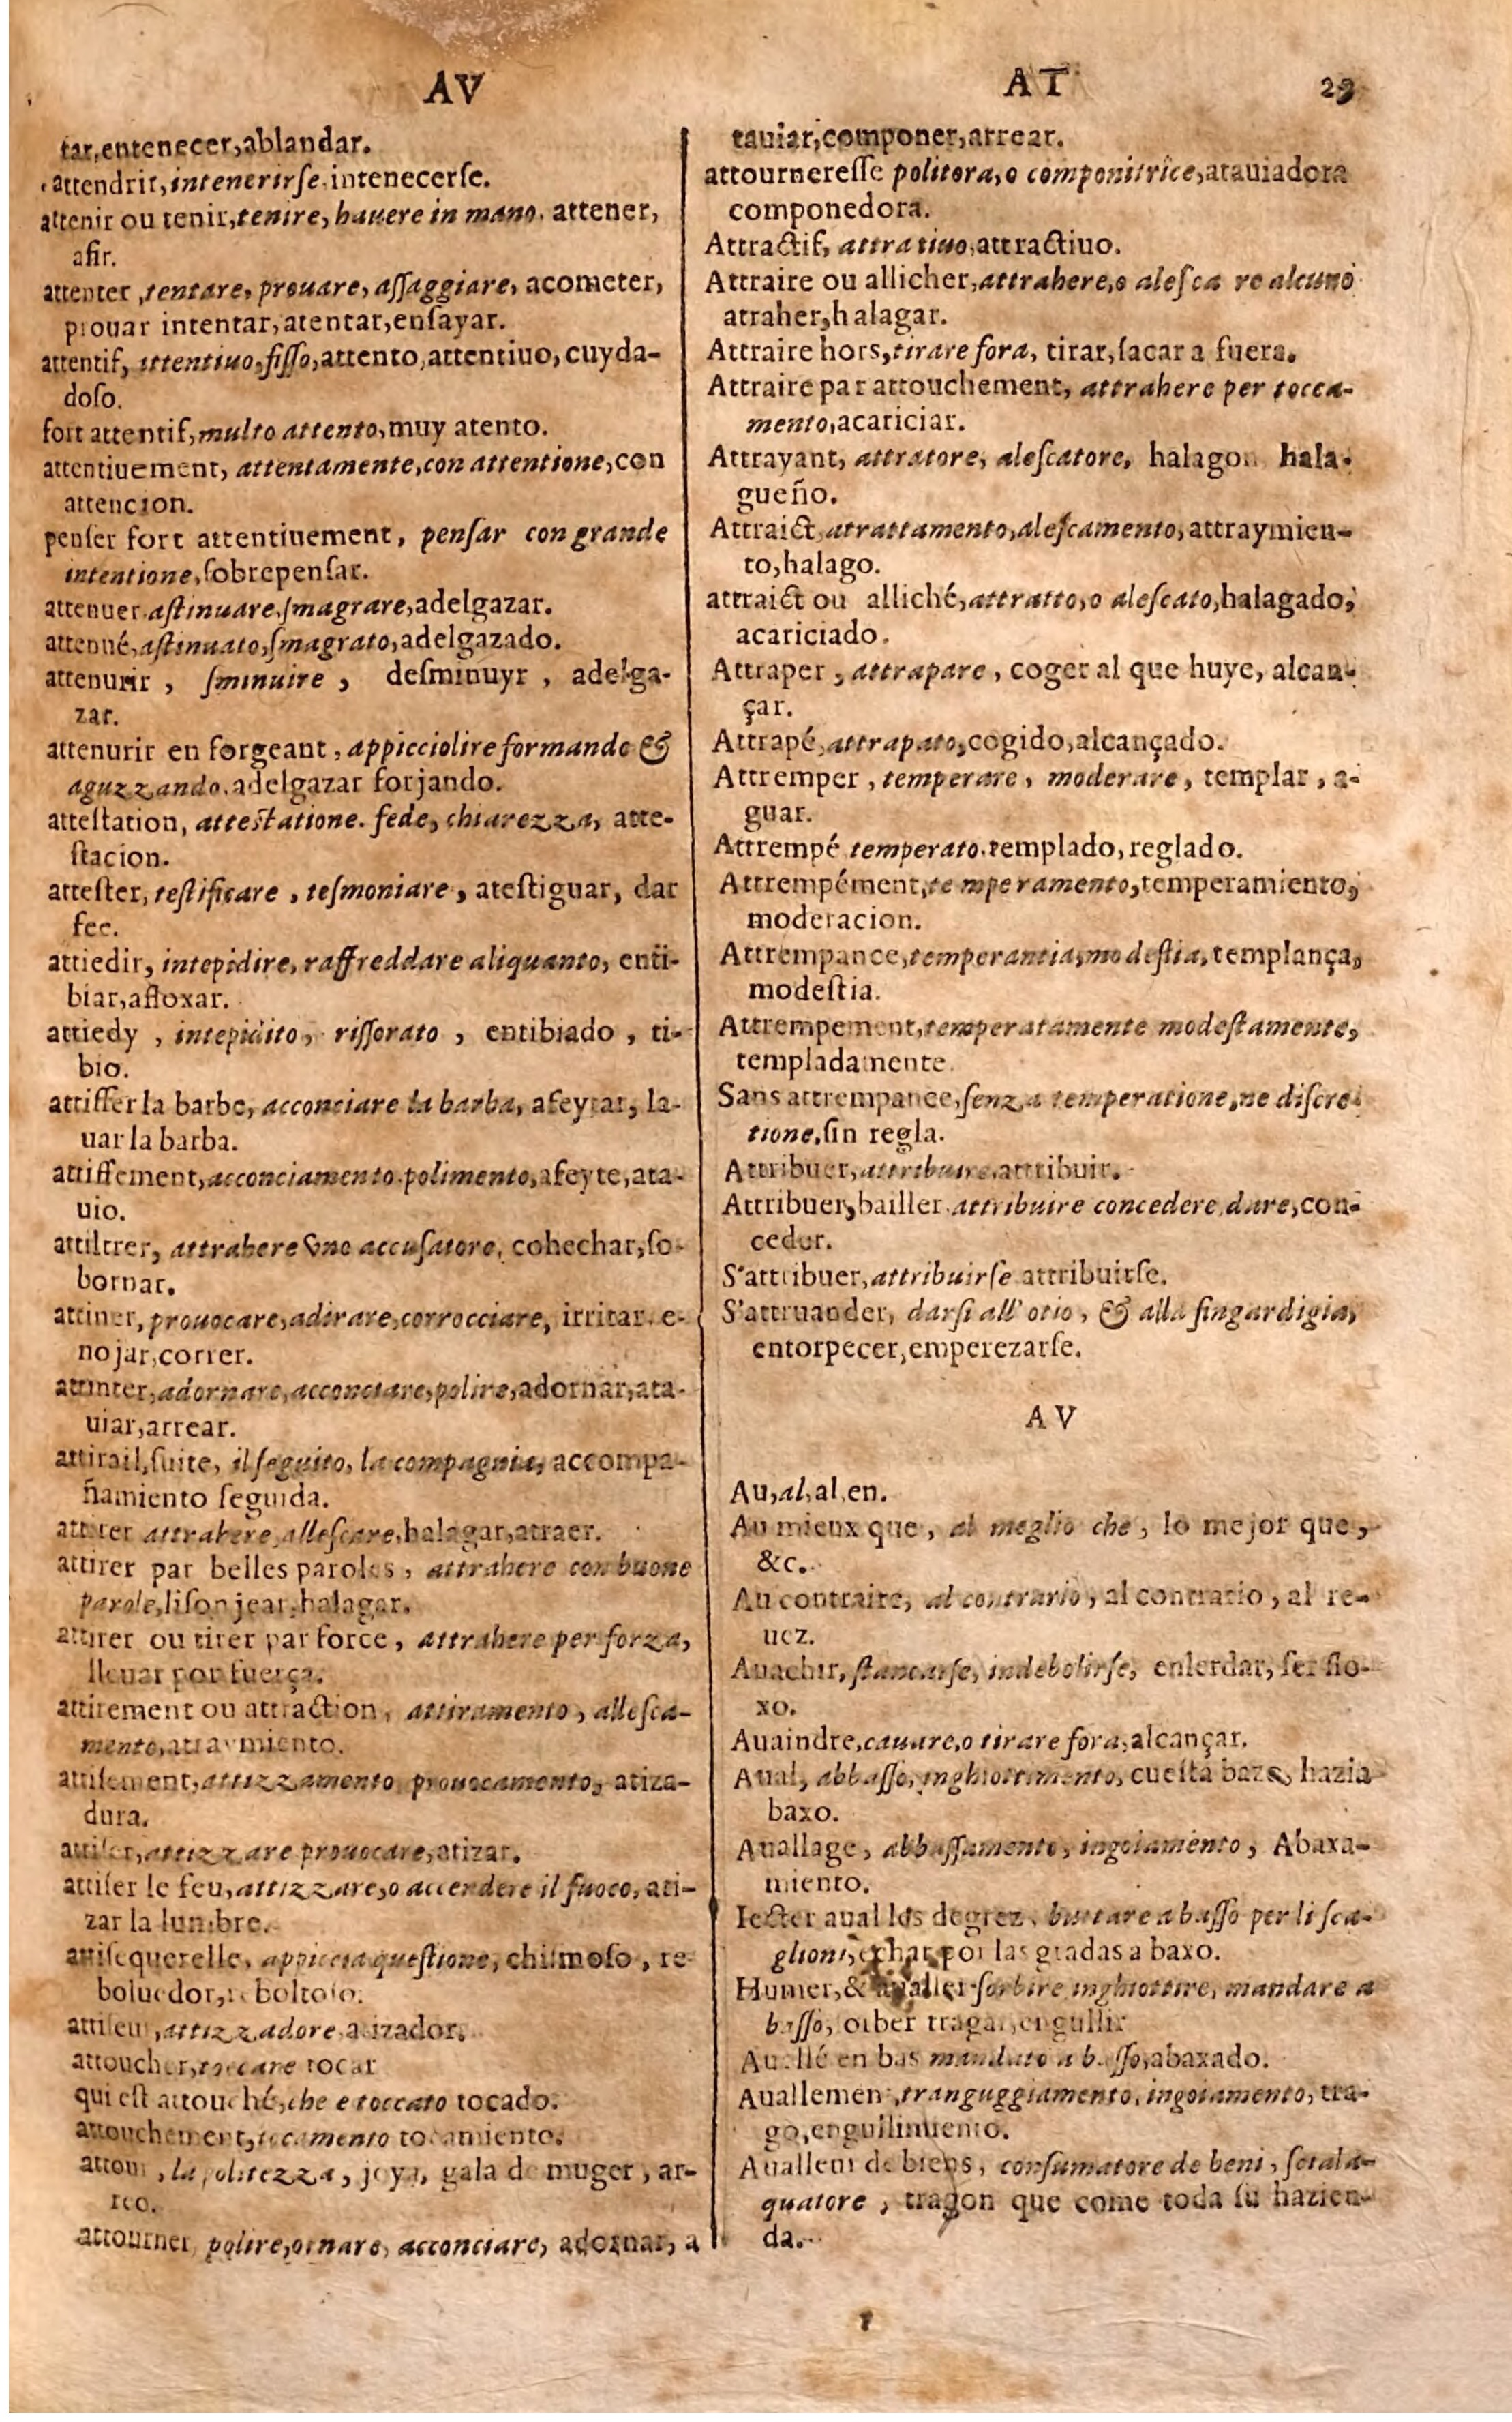 AV
tar,entenecer,ablandar.
attendrir,intenerirſe.intenecerſe.
attenir ou tenir,tenire, hauere in mano. attener,
aſir.
attenter ,tentare, prouare, aſſaggiare, acometer,
prouar intentar,atentar,enſayar.
attentif, attentiuo,fiſſo,attento,attentiuo, cuyda-
doſo.
fort attentif,multo attento,muy atento.
attentiuement, attentamente,con attentione,con
attencion.
penſer fort attentiuement, penſar con grande
intentione,ſobrepenſar.
attenuer.aſtinuare,ſmagrare,adelgazar.
attenué,aſtinuato,ſmagrato,adelgazado.
attenurir , ſminuire , deſminuyr , adelga-
zar.
attenurir en forgeant , appicciolire formando &
aguzzando.adelgazar forjando.
atteſtation, atteſtatione. fede, chiarezza, atte-
ſtacion.
atteſter, teſtificare , teſmoniare , ateſtiguar, dar
fee.
attiedir, intepidire, raffreddare aliquanto, enti-
biar,afloxar.
attiedy , intepidito, riſſorato , entibiado , ti-
bio.
attiffer la barbe, acconciare la barba, afeytar, la-
uar la barba.
attiffement,acconciamento.polimento,afeyte,ata-
uio.
attiltrer, attrahere vno accuſatore, cohechar,ſo-
bornar.
attiner, prouocare,adirare,corrocciare, irritar. e-
nojar,correr.
attinter,adornare,acconciare,polire,adornar,ata-
uiar,arrear.
attirail,ſuite, il ſeguito, la compagnia, accompa-
ñamiento ſeguida.
attirer attrahere,alleſcare,halagar,atraer.
attirer par belles paroles , attrahere con buone
parole,liſonjear,halagar.
attirer ou tirer par force , attrahere per forza,
lleuar por fuerça.
attirement ou attraction, attiramento, alleſca-
mento,attraymiento.
attiſement,attizzamento prouocamento, atiza-
dura.
attiſer,attizzare prouocare,atizar.
attiſer le feu,attizzare,o accendere il fuoco, ati-
zar la lumbre.
attiſequerelle, appiccia queſtione, chiſmoſo , re
boluedor,reboltoſo.
attiſeur,attizzadore,atizador.
attoucher,toccare tocar
qui eſt attouché,che e toccato tocado.
attouchement,tocamento tocamiento.
attour , la politezza, joya, gala de muger , ar-
reo.
attourner polire,ornare, acconciare, adornar, a
AT 29
tauiar,componer,arrear.
attournereſſe politora,o componitrice,atauiadora
componedora.
Attractif, attratiuo,attractiuo.
Attraire ou allicher,attrahere,o aleſca re alcuno
atraher,halagar.
Attraire hors,tirare fora, tirar,ſacar a fuera.
Attraire par attouchement, attrahere per tocca-
mento,acariciar.
Attrayant, attratore, aleſcatore, halagon hala-
gueño.
Attraict,atrattamento,aleſcamento,attraymien-
to,halago.
attraict ou alliché,attratto,o aleſcato,halagado,
acariciado.
Attraper , attrapare , coger al que huye, alcan-
çar.
Attrapé,attrapato,cogido,alcançado.
Attremper , temperare , moderare , templar , a-
guar.
Attrempé temperato.templado,reglado.
Attrempément,te mperamento,temperamiento,
moderacion.
Attrempance,temperantia,modeſtia,templança,
modeſtia.
Attrempement,temperatamente modeſtamente,
templadamente.
Sans attrempance,ſenza temperatione,ne diſcre-
tione,ſin regla.
Attribuer,attribuire,attribuir.
Attribuer,bailler.attribuire concedere,dare,con-
ceder.
S'attribuer,attribuirſe attribuirſe.
S'attruander, darſi all' otio , & alla fingardigia,
entorpecer,emperezarſe.
AV
Au,al,al,en.
Au mieux que , al meglio che , lo mejor que ,
&c.
Au contraire, al contrario , al contrario , al re-
uez.
Auachir, ſtancarſe, indebolirſe, enlerdar, ſer flo-
xo.
Auaindre,cauare,o tirare fora,alcançar.
Aual, abbaſſo, inghiottimento, cueſta baxo, hazia
baxo.
Auallage, abbaſſamento, ingoiamento , Abaxa-
miento.
Iecter aual les degrez , buttare a baſſo per li ſca-
glioni,echar por las gradas a baxo.
Humer,& aualler ſorbire inghiottire, mandare a
baſſo, ſorber tragar,engullir
Auallé en bas mandato a baſſo,abaxado.
Auallement,tranguggiamento, ingoiamento, tra-
go,engullimiento.
Aualleur de biens, conſumatore de beni , ſcala-
quatore , tragon que come toda ſu hazien-
da.